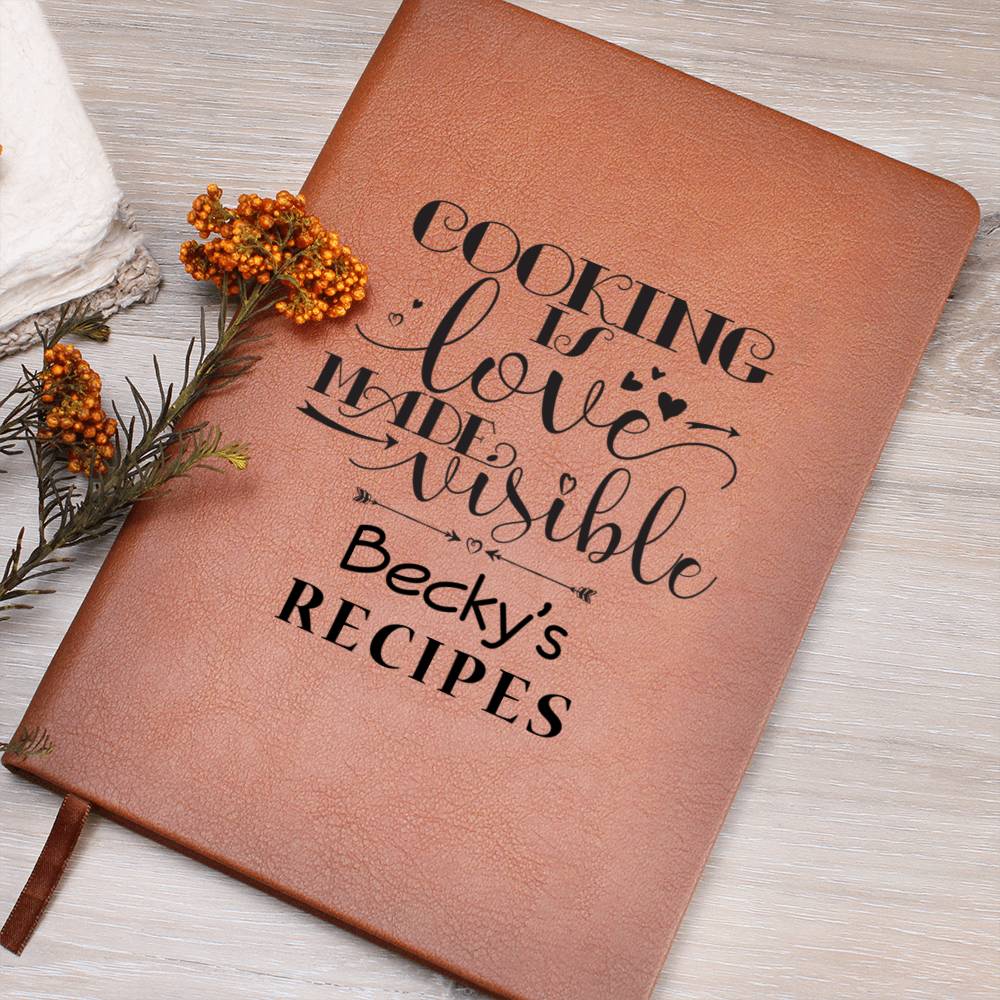 COOKING
IS
love
MADE
visible
Becky's
RECIPES